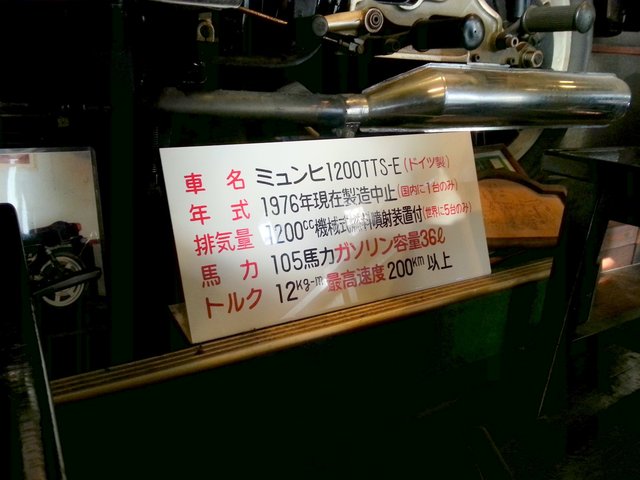 車名 ミュンヒ1200TTS-E(ドイツ製)
年式 1976年現在製造中止(国内に1台のみ)
排気量 1200cc機械式燃料噴射装置付(世界に5台のみ)
馬力 105馬力ガソリン容量36ℓ
トルク 12kg-m最高速度200km以上